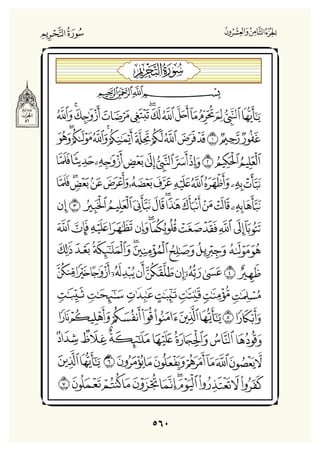 سُورَةُ التَّحْرِيمِ
الجُزْءُ الثَّامِنُ وَالعِشْرُونَ
سُورَةُ التَّحْرِيمِ
بِسْمِ اللَّهِ الرَّحْمَٰنِ الرَّحِيمِ
يَٰٓأَيُّهَا ٱلنَّبِىُّ لِمَ تُحَرِّمُ مَآ أَحَلَّ ٱللَّهُ لَكَۖ تَبْتَغِى مَرْضَاتَ أَزْوَٰجِكَۚ وَٱللَّهُ
غَفُورٌ رَّحِيمٌ ١ قَدْ فَرَضَ ٱللَّهُ لَكُمْ تَحِلَّةَ أَيْمَٰنِكُمْۚ وَٱللَّهُ مَوْلَىٰكُمْۖ وَهُوَ
ٱلْعَلِيمُ ٱلْحَكِيمُ ٢ وَإِذْ أَسَرَّ ٱلنَّبِىُّ إِلَىٰ بَعْضِ أَزْوَٰجِهِۦ حَدِيثًا فَلَمَّا
نَبَّأَتْ بِهِۦ وَأَظْهَرَهُ ٱللَّهُ عَلَيْهِ عَرَّفَ بَعْضَهُۥ وَأَعْرَضَ عَنۢ بَعْضٍۖ فَلَمَّا
نَبَّأَهَا بِهِۦ قَالَتْ مَنْ أَنۢبَأَكَ هَٰذَاۖ قَالَ نَبَّأَنِىَ ٱلْعَلِيمُ ٱلْخَبِيرُ ٣ إِن
تَتُوبَآ إِلَى ٱللَّهِ فَقَدْ صَغَتْ قُلُوبُكُمَاۖ وَإِن تَظَٰهَرَا عَلَيْهِ فَإِنَّ ٱللَّهَ
هُوَ مَوْلَىٰهُ وَجِبْرِيلُ وَصَٰلِحُ ٱلْمُؤْمِنِينَۖ وَٱلْمَلَٰٓئِكَةُ بَعْدَ ذَٰلِكَ
ظَهِيرٌ ٤ عَسَىٰ رَبُّهُۥٓ إِن طَلَّقَكُنَّ أَن يُبْدِلَهُۥٓ أَزْوَٰجًا خَيْرًا مِّنكُنَّ
مُسْلِمَٰتٍ مُّؤْمِنَٰتٍ قَٰنِتَٰتٍ تَٰٓئِبَٰتٍ عَٰبِدَٰتٍ سَٰٓئِحَٰتٍ ثَيِّبَٰتٍ
وَأَبْكَارًا ٥ يَٰٓأَيُّهَا ٱلَّذِينَ ءَامَنُوا۟ قُوٓا۟ أَنفُسَكُمْ وَأَهْلِيكُمْ نَارًا
وَقُودُهَا ٱلنَّاسُ وَٱلْحِجَارَةُ عَلَيْهَا مَلَٰٓئِكَةٌ غِلَاظٌ شِدَادٌ
لَّا يَعْصُونَ ٱللَّهَ مَآ أَمَرَهُمْ وَيَفْعَلُونَ مَا يُؤْمَرُونَ ٦ يَٰٓأَيُّهَا ٱلَّذِينَ
كَفَرُوا۟ لَا تَعْتَذِرُوا۟ ٱلْيَوْمَۖ إِنَّمَا تُجْزَوْنَ مَا كُنتُمْ تَعْمَلُونَ ٧
٥٦٠